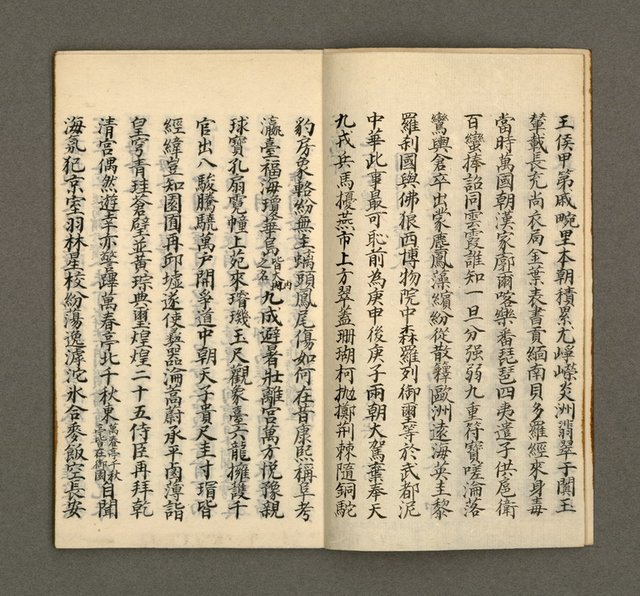 王侯甲第戚畹里本朝積累尤崢嶸炎洲翡翠于闐玉
輦載長充尚衣局金葉表書貢緬南貝多羅經來身毒
當時萬國朝漢家廓爾喀樂番琵琶四夷遣子供扈衛
百蠻捧詔同雲霞誰知一旦分强弱九重符寶嗟淪落
鸞輿倉卒出蒙塵鳳藻繽紛從散驛歐洲遠海英圭黎
羅利國與佛狼西博物院中森羅列御璽等於武都泥
中華此事最可恥前為庚申後庚子兩朝大駕棄奉天
九戎兵馬擾燕市上方翠蓋珊瑚柯拋擲荊棘隨銅駝
豹房象輅紛無主螭頭鳳尾傷如何在昔康熙稱草考
瀛臺福海瓊華島皆大內之名九成避暑壯離宮萬方悅豫親
球寶孔扇霓幢上苑來璿璣玉尺觀象臺六龍擁護千
官出八駿騰驤萬戶開爭道中朝天子貴尺圭寸瑁皆
經緯豈知園囿再邱墟遂使彝器淪蒿蔚承平鹵薄詣
皇宮青珪蒼壁並黃琮典璽煌煌二十五侍臣再拜乾
清宮偶然遊幸亦警蹕萬春亭北千秋東萬春亭千秋亭皆在御園自聞
海氛犯京室羽林星校紛蕩逸滹沱氷合麥飯空長安